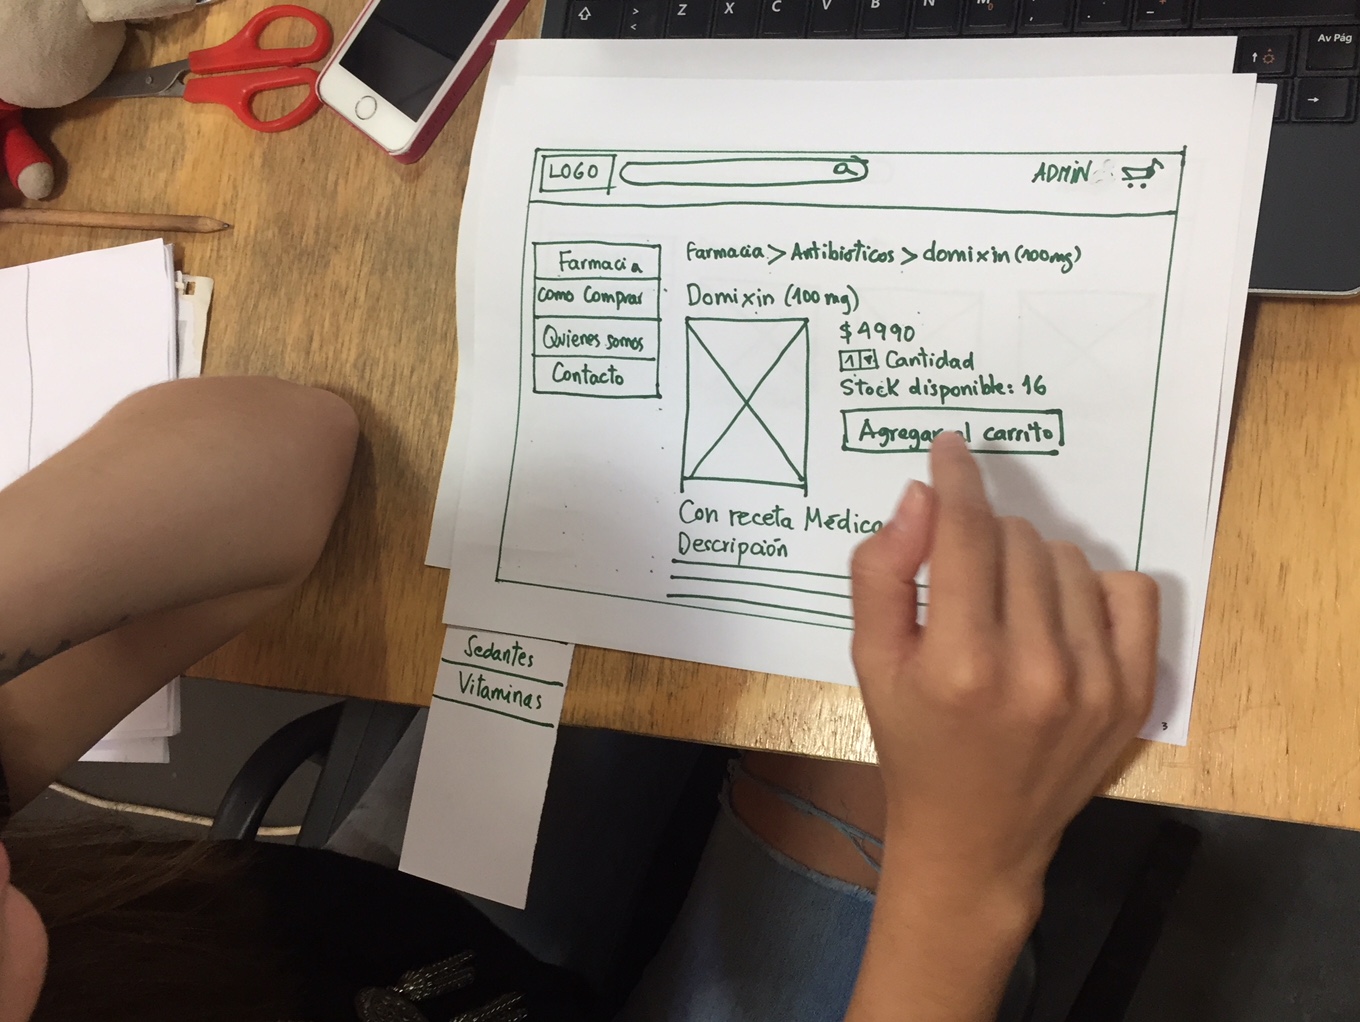 LOGO
ADMIN
Farmacia
Como Comprar
Quienes somos
Contacto
Farmacia > Antibióticos > domixin (100mg)
Domixin (100 mg)
$4990
1 Cantidad
Stock disponible: 16
Agregar al carrito
Con receta Médica
Descripción
Sedantes
Vitaminas
3
Z X C V B N M
Av Pág